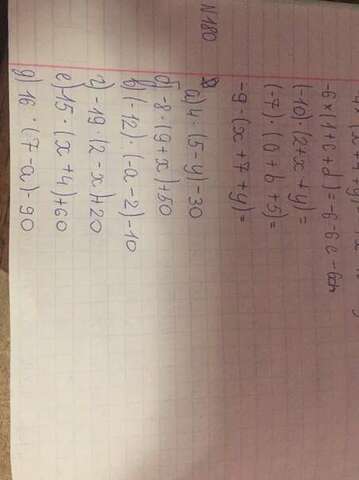 -6 × (1 + c + d) = -6 - 6c - 6d
(-10) · (2 + x + y) =
(-7) · (a + b + 5) =
-9 · (x + 7 + y) =
N 180
а) 4 · (5 - y) - 30
б) -8 · (9 + x) + 50
в) (-12) · (-a - 2) - 10
г) -19 · (2 - x) + 20
е) -15 · (x + 4) + 60
д) 16 · (7 - a) - 90